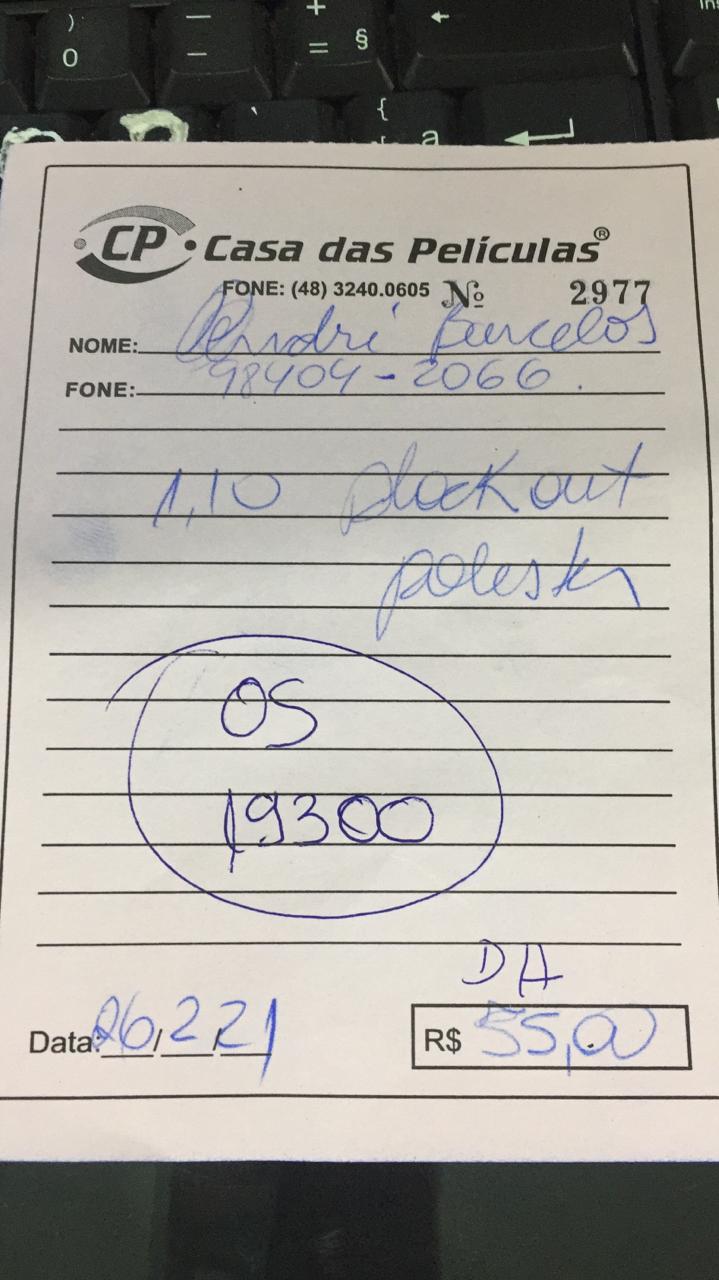 )
0
—
–
+
= §
←
Ins
`
{
[ a
CP Casa das Películas®
FONE: (48) 3240.0605 Nº 2977
NOME: Barcelos
FONE: 98404-2066.
1,10 blackout
OS
19300
DH
Data: 26/2/21 R$ 55,00